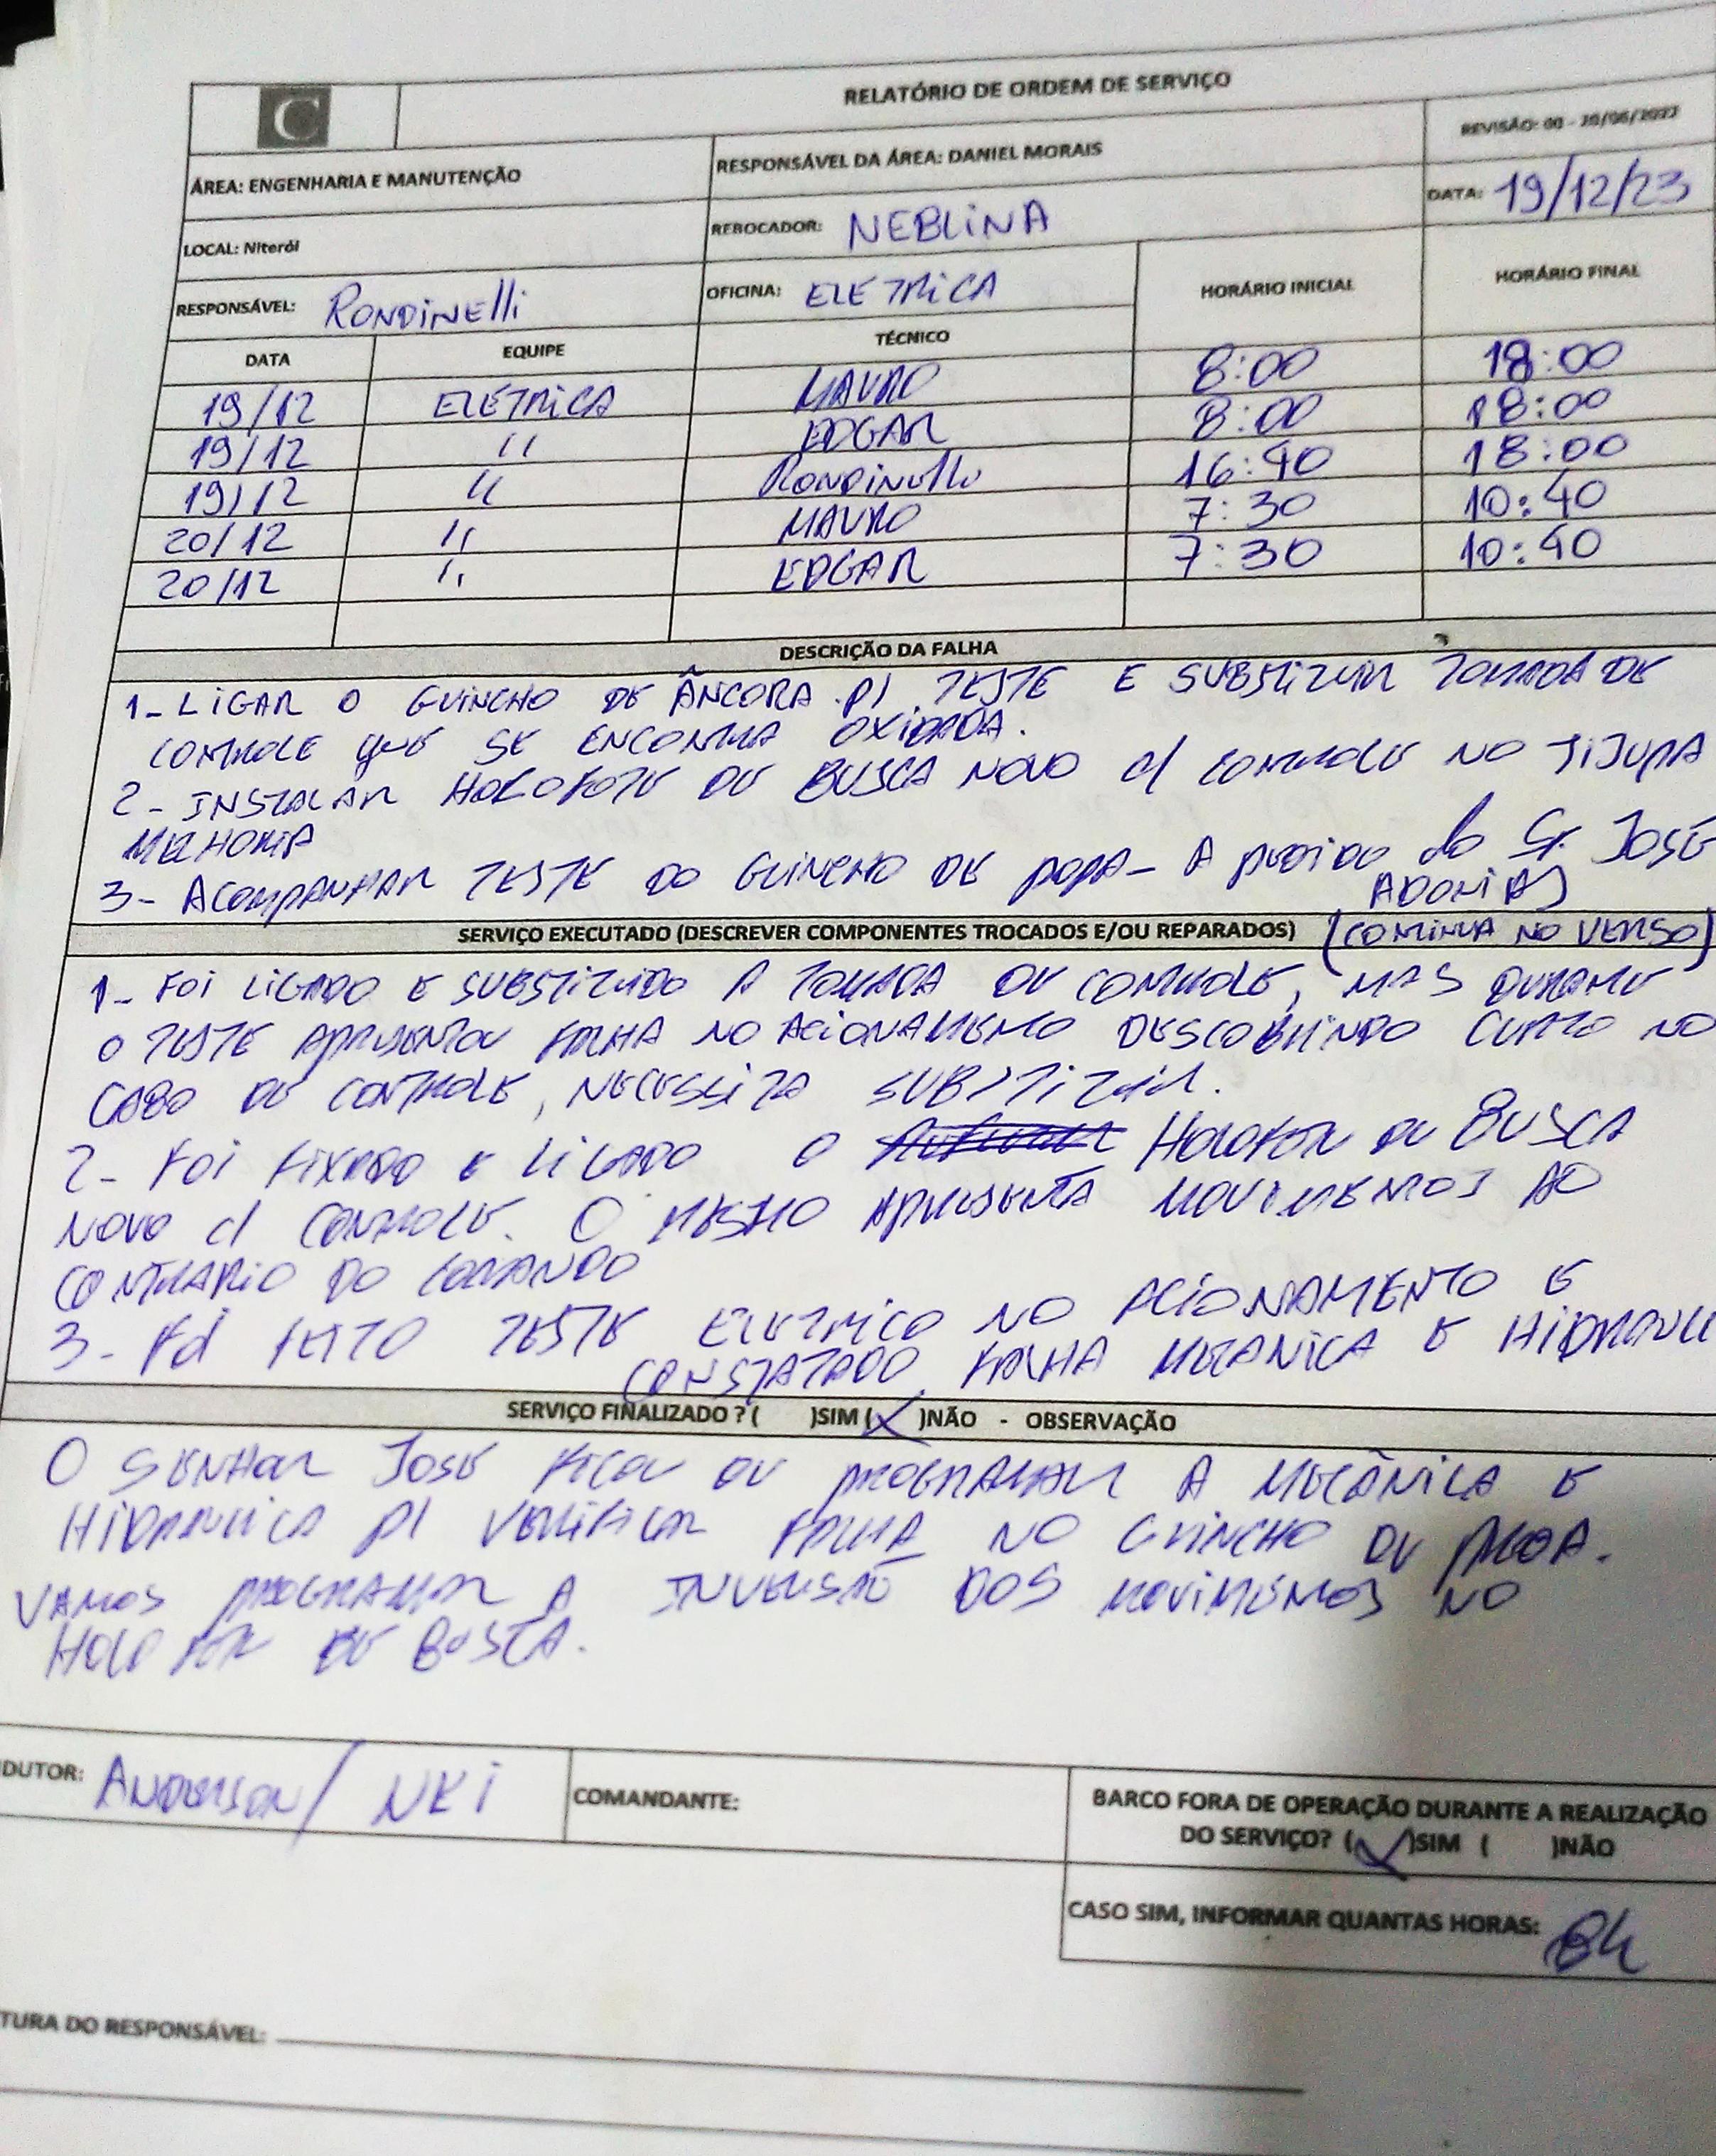 C
RELATÓRIO DE ORDEM DE SERVIÇO
ÁREA: ENGENHARIA E MANUTENÇÃO
RESPONSÁVEL DA ÁREA: DANIEL MORAIS
REVISÃO: 00 - 20/06/2022
LOCAL: Niterói
REBOCADOR: NEBLINA
DATA: 19/12/23
RESPONSÁVEL: RONDINElli
OFICINA: ELETRICA
HORÁRIO INICIAL
HORÁRIO FINAL
DATA EQUIPE TÉCNICO
19/12 ELETRICA MAURO 8:00 18:00
19/12 " EDGAR 8:00 18:00
19/12 " RONDINElli 16:40 18:00
20/12 " MAURO 7:30 10:40
20/12 " EDGAR 7:30 10:40
DESCRIÇÃO DA FALHA
1- LIGAR O GUINCHO DE ÂNCORA P/ TESTE E SUBSTITUIR TOMADA DE
CONTROLE QUE SE ENCONTRA OXIDADA.
2- INSTALAR HOLOFOTE DE BUSCA NOVO C/ CONTROLE NO TIJUPA
MELHORIA
3- ACOMPANHAR TESTE DO GUINCHO DE POPA - A PEDIDO do Sr. JOSÉ
ADONIAS
SERVIÇO EXECUTADO (DESCREVER COMPONENTES TROCADOS E/OU REPARADOS) (CONTINUA NO VERSO)
1- FOI LIGADO E SUBSTITUIDO A TOMADA DE CONTROLE, MAS DURANTE
O TESTE APRESENTOU FALHA NO ACIONAMENTO DESCOBRINDO CURTO NO
CABO DE CONTROLE, NECESSITA SUBSTITUIR.
2- FOI FIXADO E LIGADO O HOLOFOTE DE BUSCA
NOVO C/ CONTROLE. O MESMO APRESENTA MOVIMENTOS AO
CONTRARIO DO COMANDO
3- FOI FEITO TESTE ELETRICO NO ACIONAMENTO E
CONSTATADO FALHA MECANICA E HIDRAULI
SERVIÇO FINALIZADO ? ( )SIM (X )NÃO - OBSERVAÇÃO
O SENHOR JOSÉ FICOU DE PROGRAMAR A MECÂNICA E
HIDRAULICA P/ VERIFICAR FALHA NO GUINCHO DE PROA.
VAMOS PROGRAMAR A INVERSÃO DOS MOVIMENTOS NO
HOLOFOTE DE BUSCA.
DUTOR: ANDERSON / NEI
COMANDANTE:
BARCO FORA DE OPERAÇÃO DURANTE A REALIZAÇÃO
DO SERVIÇO? (X)SIM ( )NÃO
CASO SIM, INFORMAR QUANTAS HORAS: 8h
TURA DO RESPONSÁVEL: